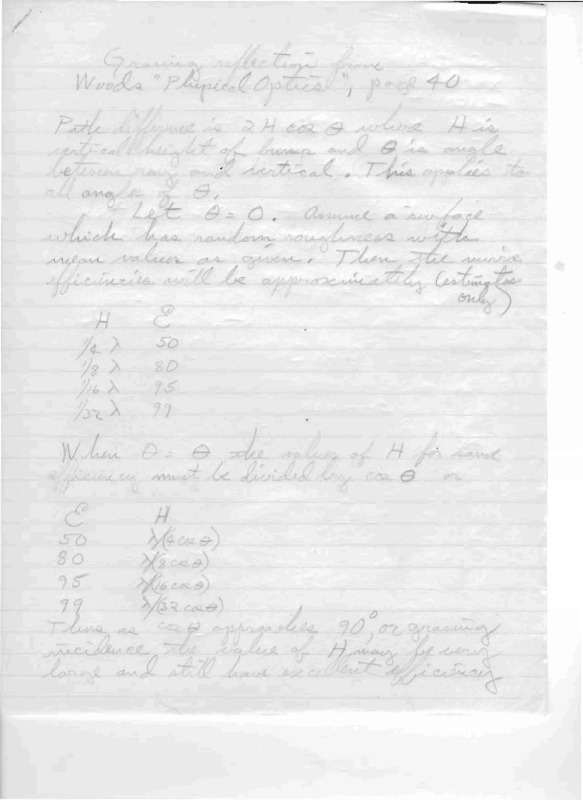 Grazing reflection from
Woods "Physical Optics", page 40
Path difference is 2 H cos θ where H is
vertical height of bump and θ is angle
between ray and vertical. This applies to
all angles of θ.
Let θ = 0. Assume a surface
which has random roughness with
mean values as given. Then the mirror
efficiencies will be approximately (estimates
only)
H ℰ
1/4 λ 50
1/8 λ 80
1/16 λ 95
1/32 λ 99
When θ = θ the values of H for same
efficiency must be divided by cos θ or
ℰ H
50 λ/(4 cos θ)
80 λ/(8 cos θ)
95 λ/(16 cos θ)
99 λ/(32 cos θ)
Thus as cos θ approaches 90°, or grazing
incidence the value of H may be very
large and still have excellent efficiency